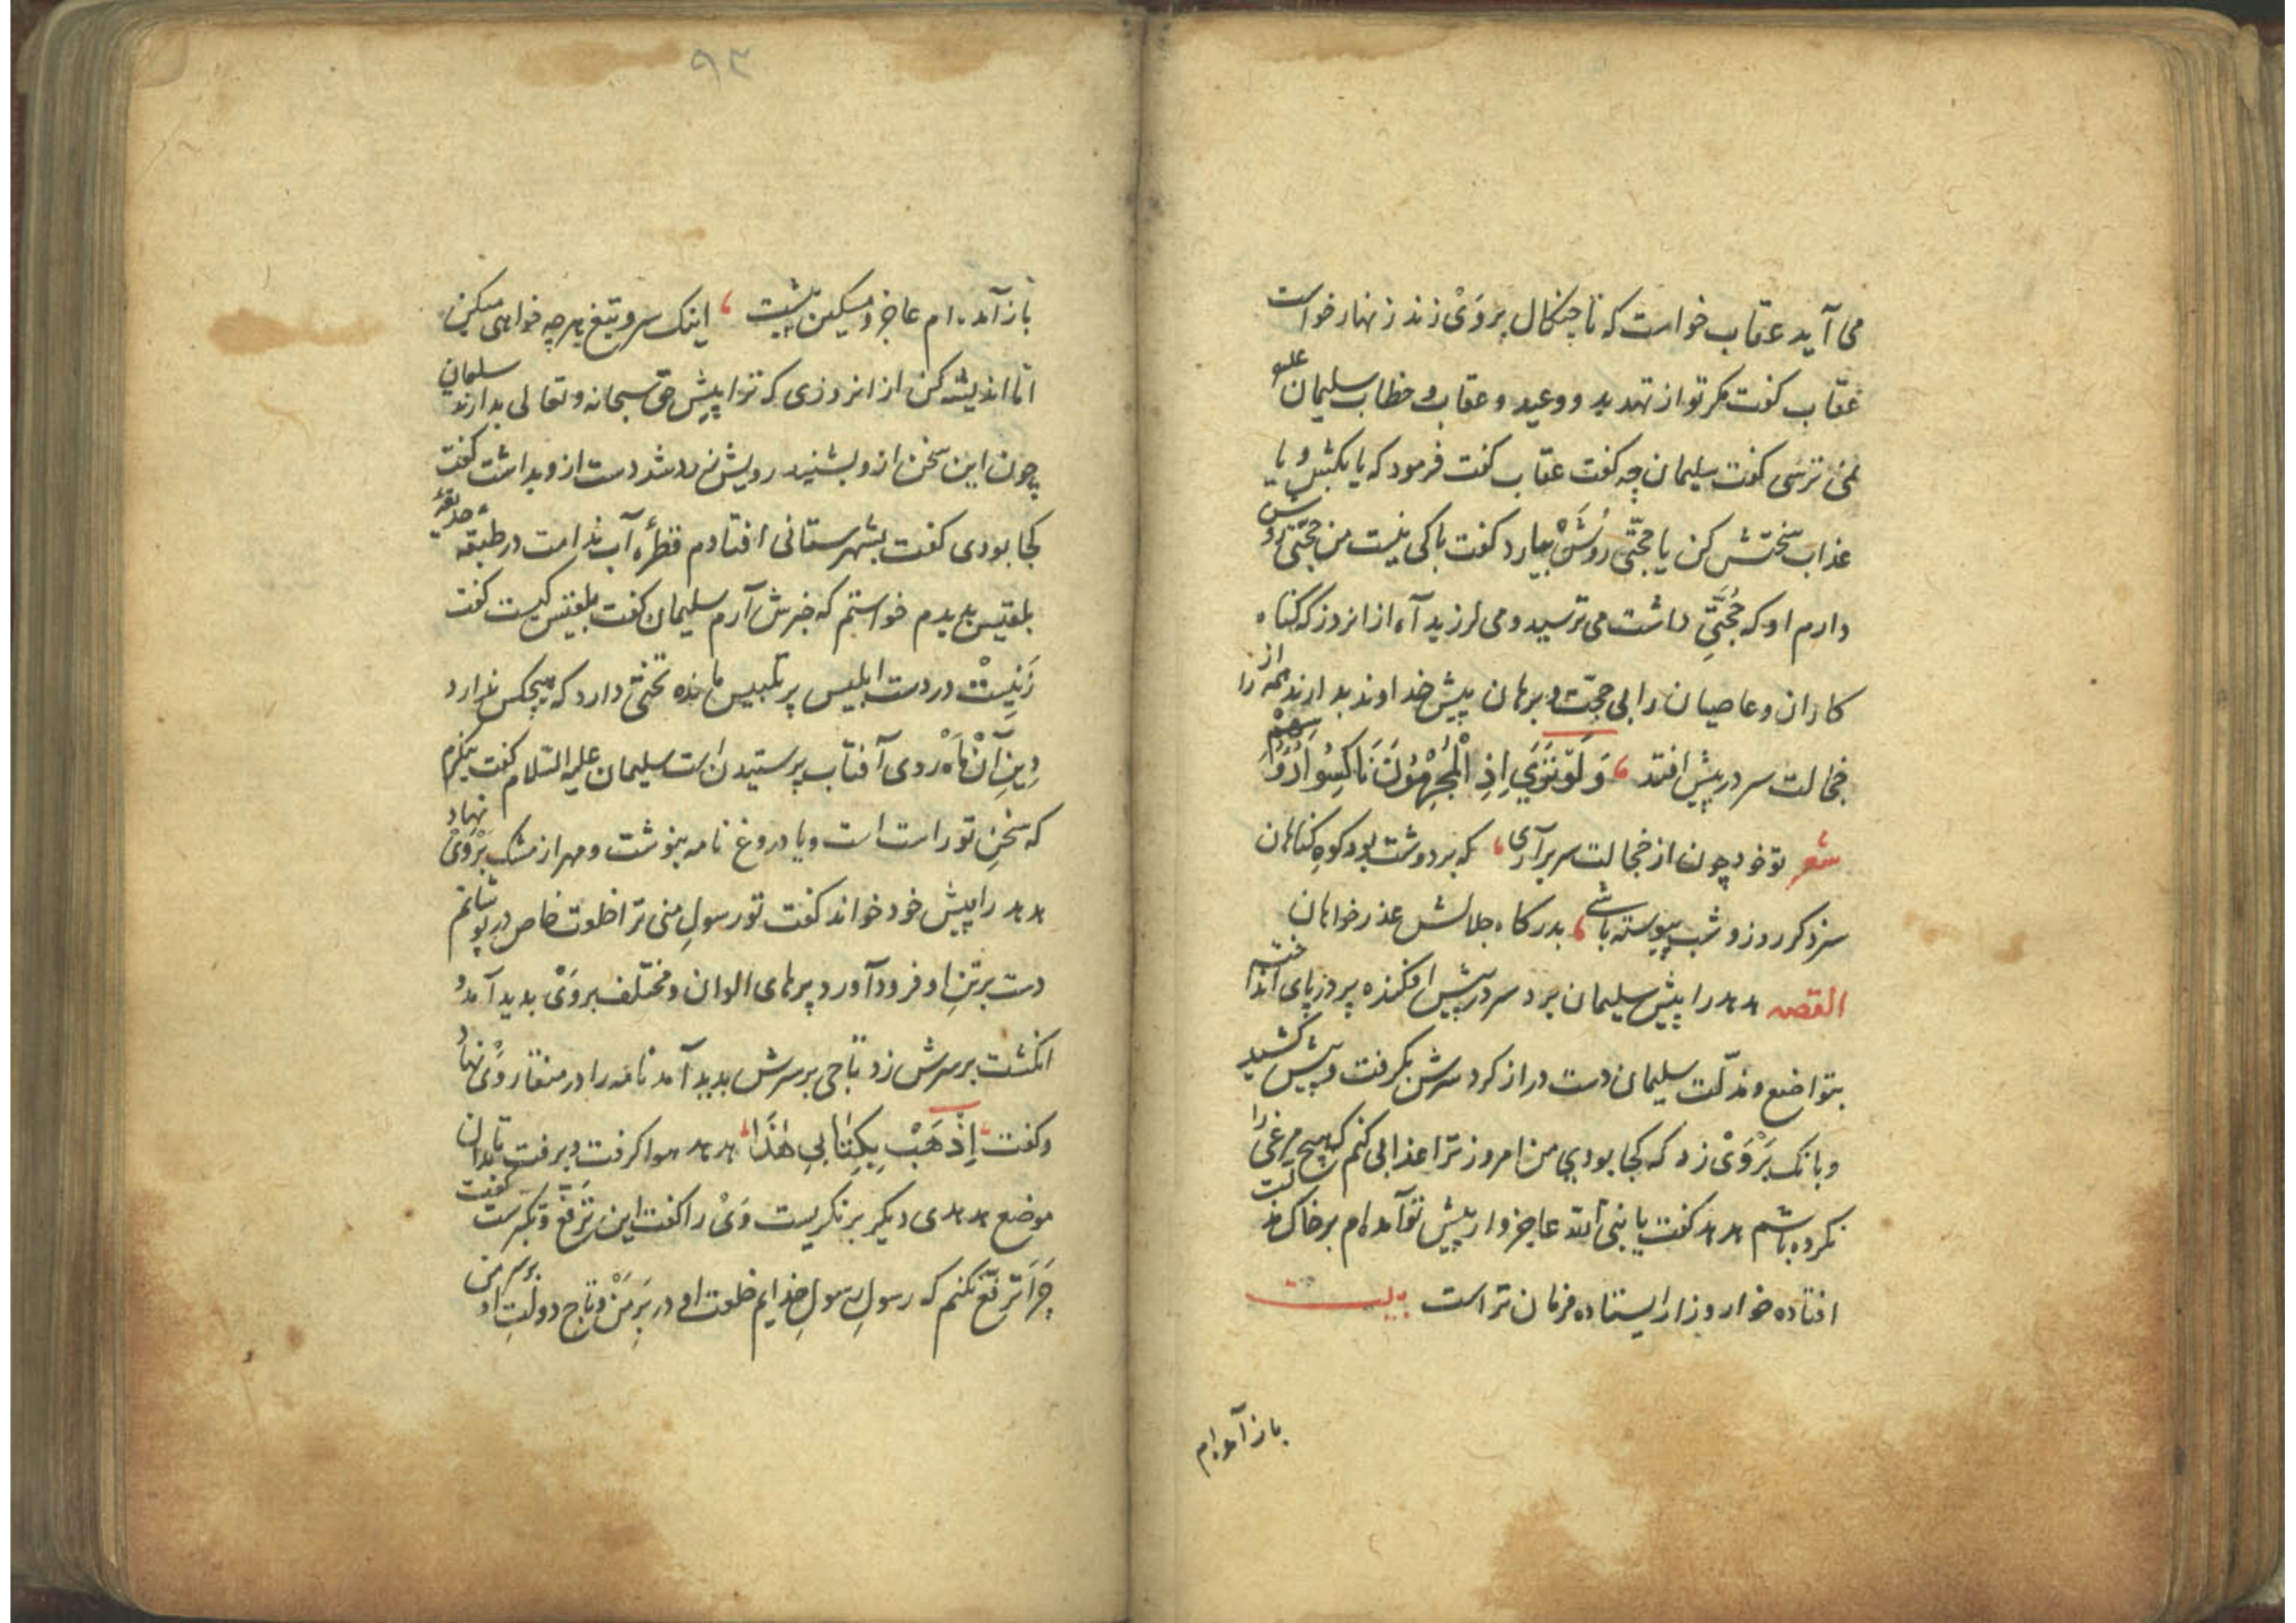 می آید عقاب خواست که تا چنکال بروَیْ زند زنهار خواست
عقاب کفت مکر تو از تهدید و وعید و عقاب و خطاب سلیمان علیه
نمی ترسی کفت سلیمان چه کفت عقاب کفت فرمود که یا بکشش و یا
عذاب سختش کن یا حجّتی روُشَنْ بیارد کفت باکی نیست من حجّتی روشن
دارم او که حُجّتی داشت می ترسید و می لرزید آه از انروز که کناه
کاران و عاصیان را بی حجّت و برهان پیش خداوند بدارند همه را از
خجالت سر در پیش افتد وَلَوْ تَرَي اِذِ الْمُجْرِمُونَ نَاكِسُوا رُؤُسِهِمْ
شعر تو خود چون از خجالت سر برآری که بر دوشت بود کوهِ کناهان
سزد کر روز و شب پیوسته باشی بدرکاه جلالش عذر خواهان
القصه هدهد را پیش سلیمان برد سر در پیش افکنده پر در پای انداخته
بتواضع و مذلّت سلیمان دست دراز کرد سرش بکرفت و پیش کشید
و بانک بَرْوَیْ زد که کجا بودي من امروز ترا عذابی کنم که هیچ مرغی را
نکرده باشم هدهد کفت یا نبی الله عاجزوار پیش تو آمده ام بر خاک مذلت
افتاده خوار و زار ایستاده فرمان تراست بیت
باز آمده ام
۹۳
باز آمده ام عاجز و مسکین پیشت اینک سر و تیغ هرچه خواهی میکن
امّا اندیشه کن از انروزی که ترا پیش حق سبحانه و تعالی بدارند سلیمان
چون این سخن ازو بشنید رویش زرد شد دست ازو بداشت کفت
کجا بودی کفت بشهرستانی افتادم قطرۀ آب ندامت در طبقه حدیقۀ
بلقیس بدیدم خواستم که خبرش آرم سلیمان کفت بلقیس کیست کفت
زَنِیسْت در دست ابلیس پر تلبیس مانده تختی دارد که هیچکس ندارد
دِینِ آنْ مَاهْ روی آفتاب پرستیدن است سلیمان علیه السّلام کفت بنکرم
که سخنِ تو راست است و یا دروغ نامه بنوشت و مهر از مشک بَرْوَیْ نهاد
هدهد را پیش خود خواند کفت تو رسولِ منی ترا خلعت خاص در پوشانم
دست بر تنِ او فرود آورد پرهای الوان و مختلف بروَیْ بدید آمد و
انکشت بر سرش زد تاجی بر سرش بدید آمد نامه را در منقار وَیْ نهاد
و کفت اِذْهَبْ بِكِتٰابِي هٰذٰا هدهد هوا کرفت و برفت تا بدان
موضع هدهدی دیکر برنکریست وَیْ را کفت این تَرَفّع و تکبر چیست کفت
چَرَا تَرَفّع نکنم که رسولِ رسولِ خدایم خلعت او در برِ مَنْ و تاج دولتِ او بر سر من